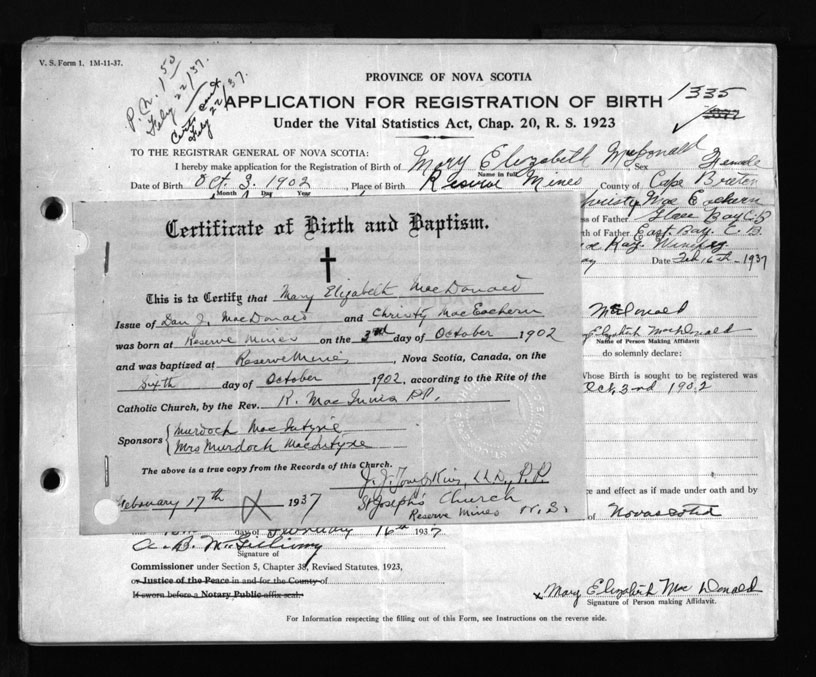 V. S. Form 1. 1M-11-37.
P.N. 1 50
Feby 22/37.
Feby 22/37.
PROVINCE OF NOVA SCOTIA
APPLICATION FOR REGISTRATION OF BIRTH
1335
Under the Vital Statistics Act, Chap. 20, R. S. 1923
TO THE REGISTRAR GENERAL OF NOVA SCOTIA:
I hereby make application for the Registration of Birth of Mary Elizabeth McDonald Sex Female
Name in full
Date of Birth Oct. 3. 1902, Place of Birth Reserve Mines County of Cape Breton
Month Day Year
Christy Mac Eachern
s of Father Glace Bay C.B
th of Father East Bay. C. B.
Date Feb 16th 1937
McDonald
Elizabeth MacDonald
Name of Person Making Affidavit
do solemnly declare:
Whose Birth is sought to be registered was
Oct. 3nd 1902
ce and effect as if made under oath and by
of Nova Scotia
Certificate of Birth and Baptism.
This is to Certify that Mary Elizabeth MacDonald
Issue of Dan J. MacDonald and Christy MacEachern
was born at Reserve Mines on the 3rd day of October 1902
and was baptized at Reserve Mines, Nova Scotia, Canada, on the
sixth day of October 1902, according to the Rite of the
Catholic Church, by the Rev. R. MacInnis P.P.
Sponsors Murdoch MacIntyre
Mrs Murdoch MacIntyre
The above is a true copy from the Records of this Church.
J. J. Tompkins, LL.D., P.P.
February 17th 1937 St Joseph's Church
Reserve Mines N.S.
day of February 16th 1937
Signature of
Commissioner under Section 5, Chapter 38, Revised Statutes, 1923,
or Justice of the Peace in and for the County of
If sworn before a Notary Public affix seal.
x Mary Elizabeth MacDonald
Signature of Person making Affidavit.
For Information respecting the filling out of this Form, see Instructions on the reverse side.